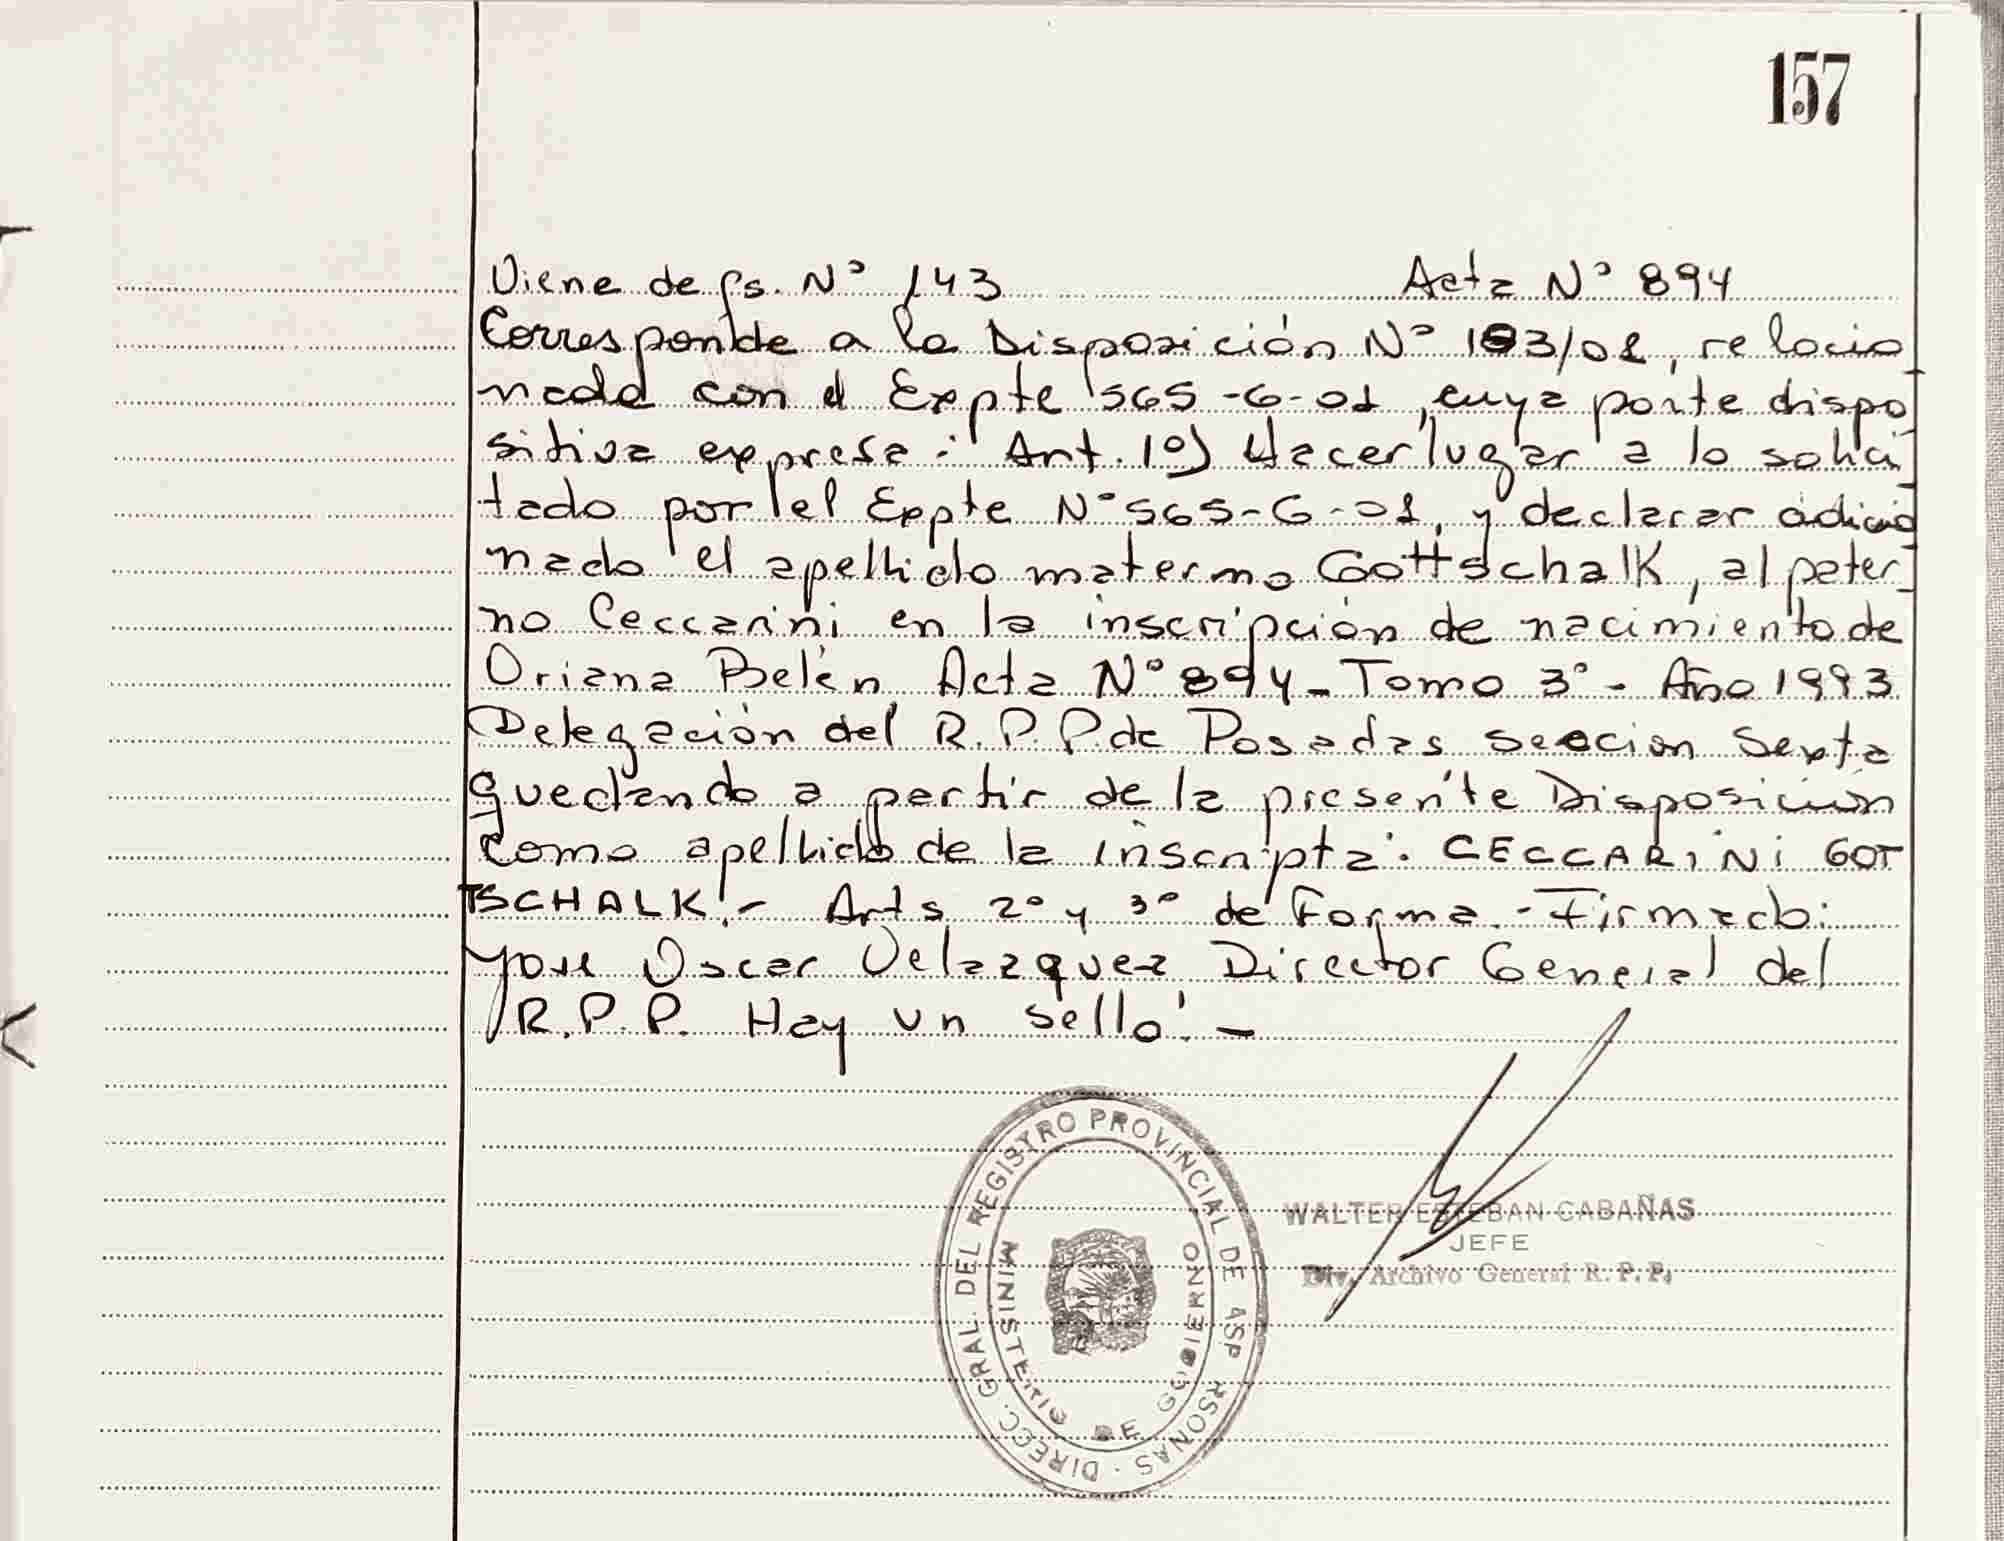 157
Viene de fs. Nº 143 Acta Nº 894
Corresponde a la Disposición Nº 103/01, relacio
nada con el Expte 565-G-01, cuya parte dispo
sitiva expresa: Art. 1º) Hacer lugar a lo solici
tado por el Expte Nº 565-G-01, y declarar adicio
nado el apellido materno Gottschalk, al pater
no Ceccarini en la inscripción de nacimiento de
Oriana Belén Acta Nº 894 - Tomo 3º - Año 1993
Delegación del R.P.P. de Posadas sección Sexta
quedando a partir de la presente Disposición
como apellido de la inscripta: CECCARINI GOT
TSCHALK".- Arts 2º y 3º de Forma.- Firmado:
José Oscar Velazquez Director General del
R.P.P. Hay un sello".-
DIRECC. GRAL. DEL REGISTRO PROVINCIAL DE LAS PERSONAS
MINISTERIO DE GOBIERNO
WALTER ESTEBAN CABAÑAS
JEFE
Div. Archivo General R.P.P.